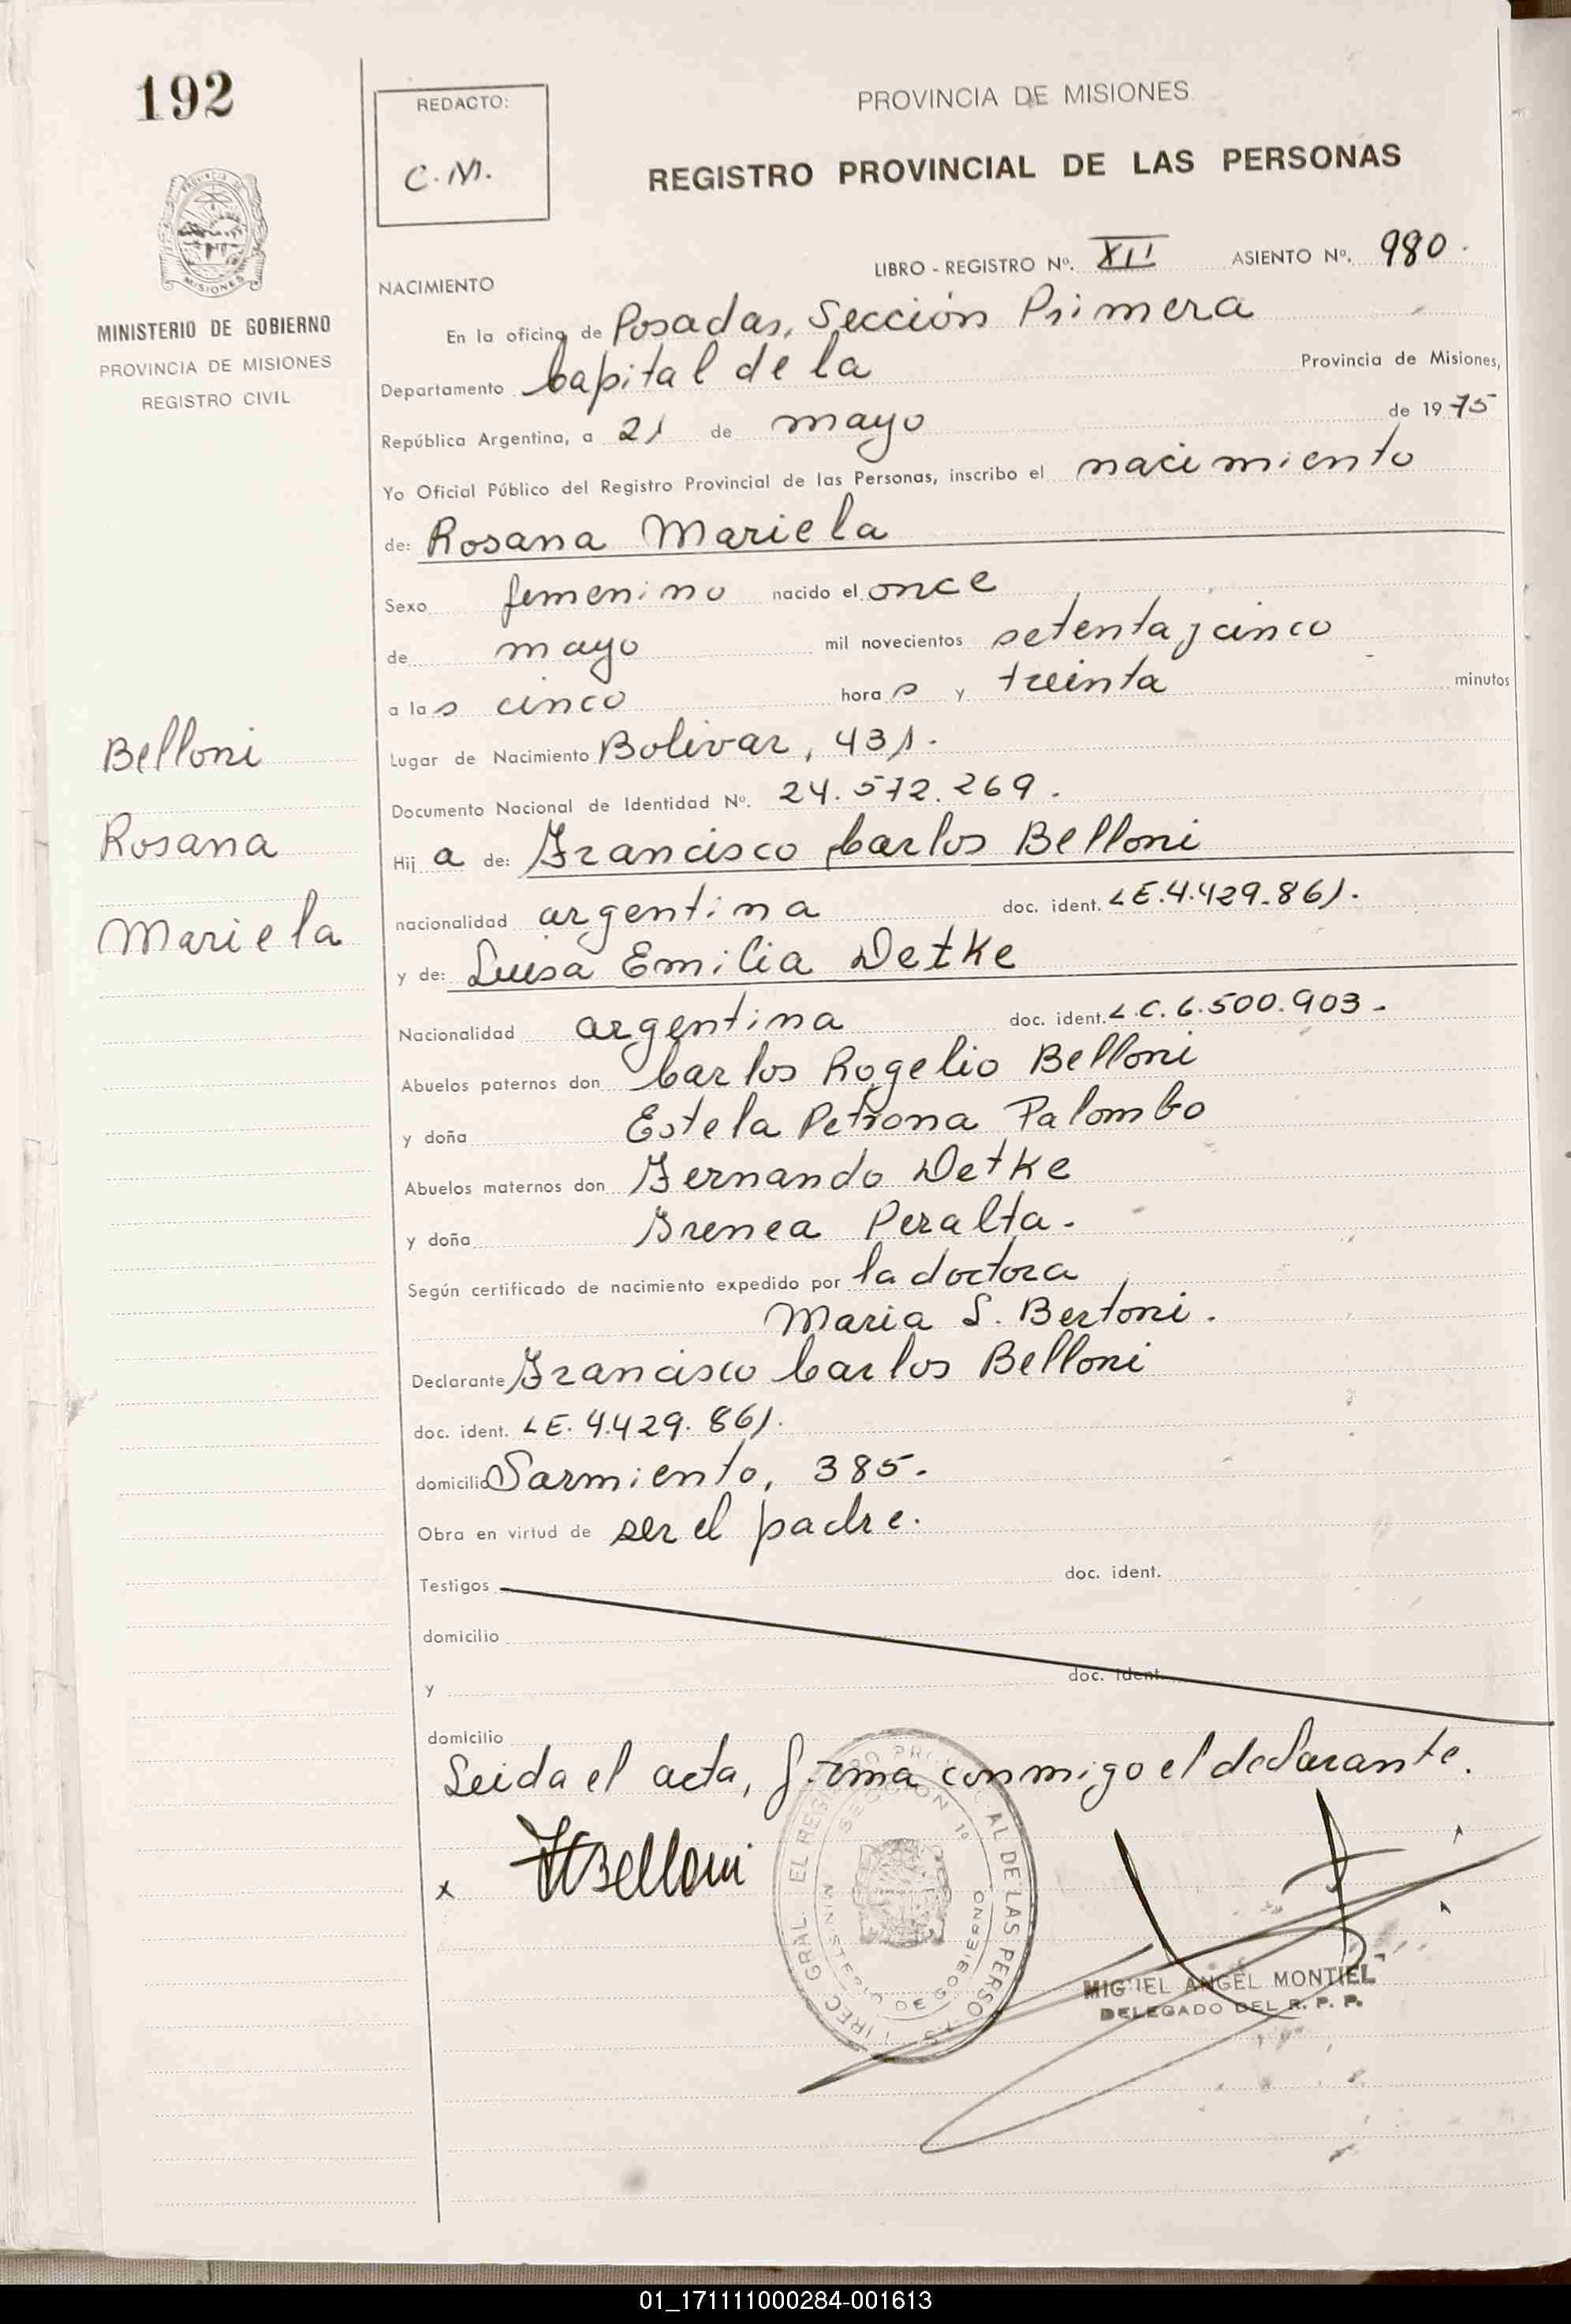 192
REDACTO:
C.M.
PROVINCIA DE MISIONES
REGISTRO PROVINCIAL DE LAS PERSONAS
MISIONES
MINISTERIO DE GOBIERNO
PROVINCIA DE MISIONES
REGISTRO CIVIL
LIBRO - REGISTRO Nº. XII ASIENTO Nº. 980.
NACIMIENTO
En la oficina de Posadas, Sección Primera
Departamento Capital de la Provincia de Misiones,
República Argentina, a 21 de mayo de 1975
Yo Oficial Público del Registro Provincial de las Personas, inscribo el nacimiento
de: Rosana Mariela
Sexo femenino nacido el once
de mayo mil novecientos setenta y cinco
a las cinco horas y treinta minutos
Belloni
Rosana
Mariela
Lugar de Nacimiento Bolivar, 431.
Documento Nacional de Identidad Nº. 24.572.269.
Hija de: Francisco Carlos Belloni
nacionalidad argentina doc. ident. LE.4.429.861.
y de: Luisa Emilia Detke
Nacionalidad argentina doc. ident. L.C. 6.500.903.-
Abuelos paternos don Carlos Rogelio Belloni
y doña Estela Petrona Palombo
Abuelos maternos don Fernando Detke
y doña Irenea Peralta.
Según certificado de nacimiento expedido por la doctora
Maria S. Bertoni.
Declarante Francisco Carlos Belloni
doc. ident. LE. 4.429.861.
domicilio Sarmiento, 385.
Obra en virtud de ser el padre.
Testigos doc. ident.
domicilio
y doc. ident.
domicilio
Leida el acta, firma conmigo el declarante.
x FCBelloni
SECCION 1º
MINISTERIO DE GOBIERNO
MIGUEL ANGEL MONTIEL
DELEGADO DEL R. P. P.
01_171111000284-001613